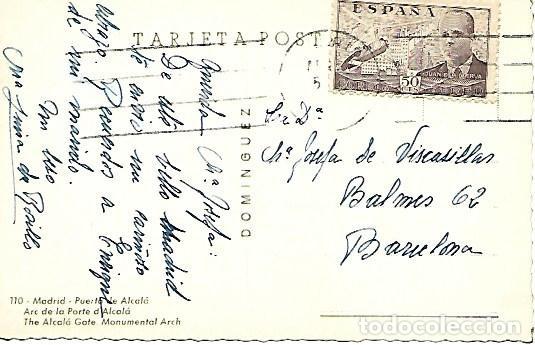 TARJETA POSTAL
ESPAÑA
50
CTS
JUAN DE LA CIERVA
CORREO AEREO
Querida Mª Josefa:
De este bello Madrid
te envio mi cariñoso
abrazo. Recuerdos a Enrique
de mi marido.
Un beso
DOMINGUEZ
Sra Dª
Mª Josefa de Viscasillas
Balmes 62
Barcelona
110 - Madrid - Puerta de Alcalá
Arc de la Porte d'Alcalá
The Alcalá Gate Monumental Arch
todocoleccion